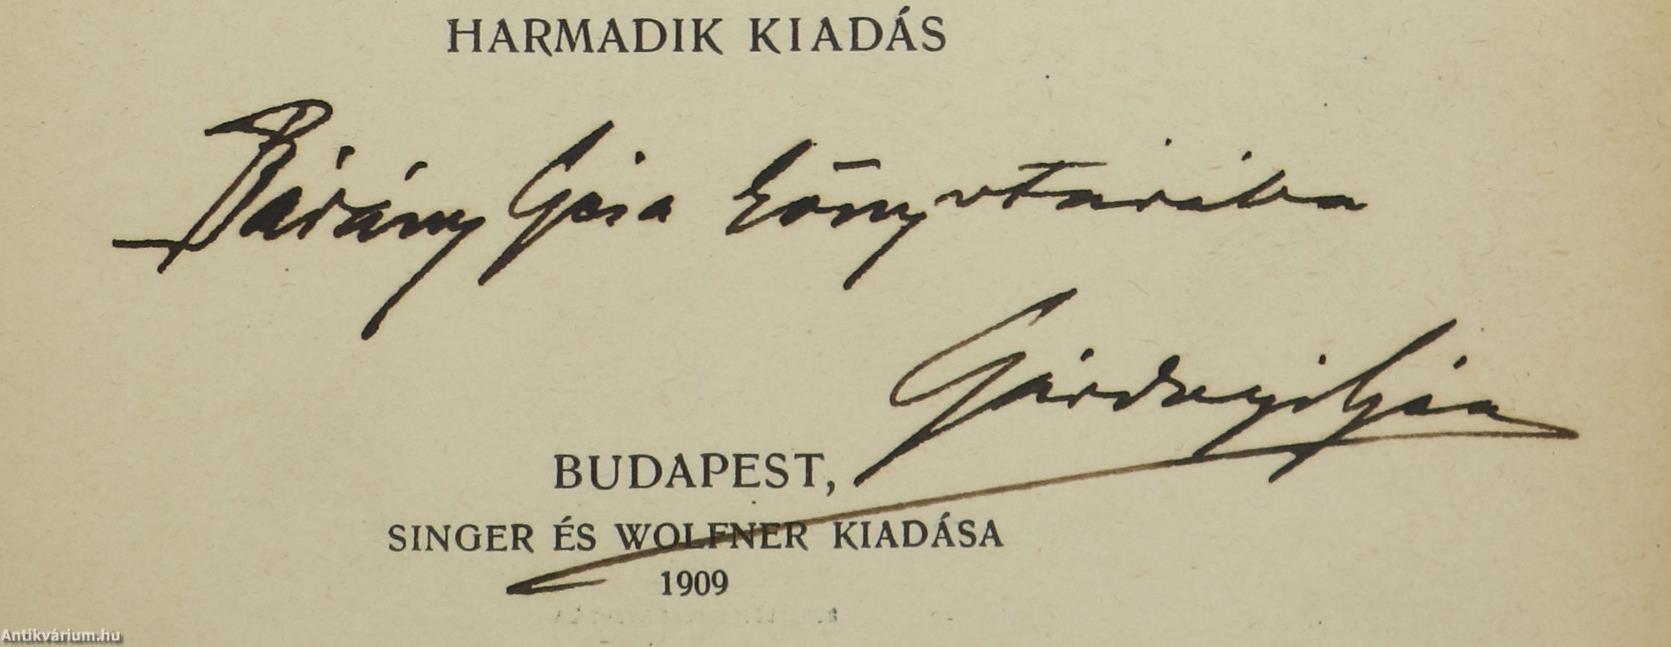 HARMADIK KIADÁS
Bárány Géza könyvtárába
Gárdonyi Géza
BUDAPEST,
SINGER ÉS WOLFNER KIADÁSA
1909
Antikvárium.hu